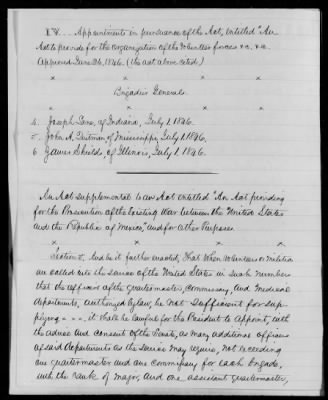 IV. Appointments in pursuance of the Act, entitled "An
Act to provide for the organization of the Volunteer forces &c. &c.
Approved June 26, 1846. (the act above cited)
x x x x
Brigadier Generals.
x x x x
4. Joseph Lane, of Indiana, July 1, 1846.
5. John A. Quitman of Mississippi, July 1, 1846.
6 James Shields, of Illinois, July 1, 1846.
An Act supplemental to an Act entitled "An Act providing
for the Prosecution of the Existing War between the United States
and the Republic of Mexico," and for other Purposes
x x x x
Section 5. And be it further enacted, That when Volunteers or Militia
are called into the service of the United States in such numbers
that the officers of the quartermaster, commissary, and medical
departments, authorized by law, be not sufficient for sup-
plying - - -, it shall be lawful for the President to appoint, with
the advice and consent of the Senate, as many additional officers
of said departments as the service may require, not exceeding
one quartermaster and one commissary for each brigade,
with the rank of major, and one assistant quartermaster,